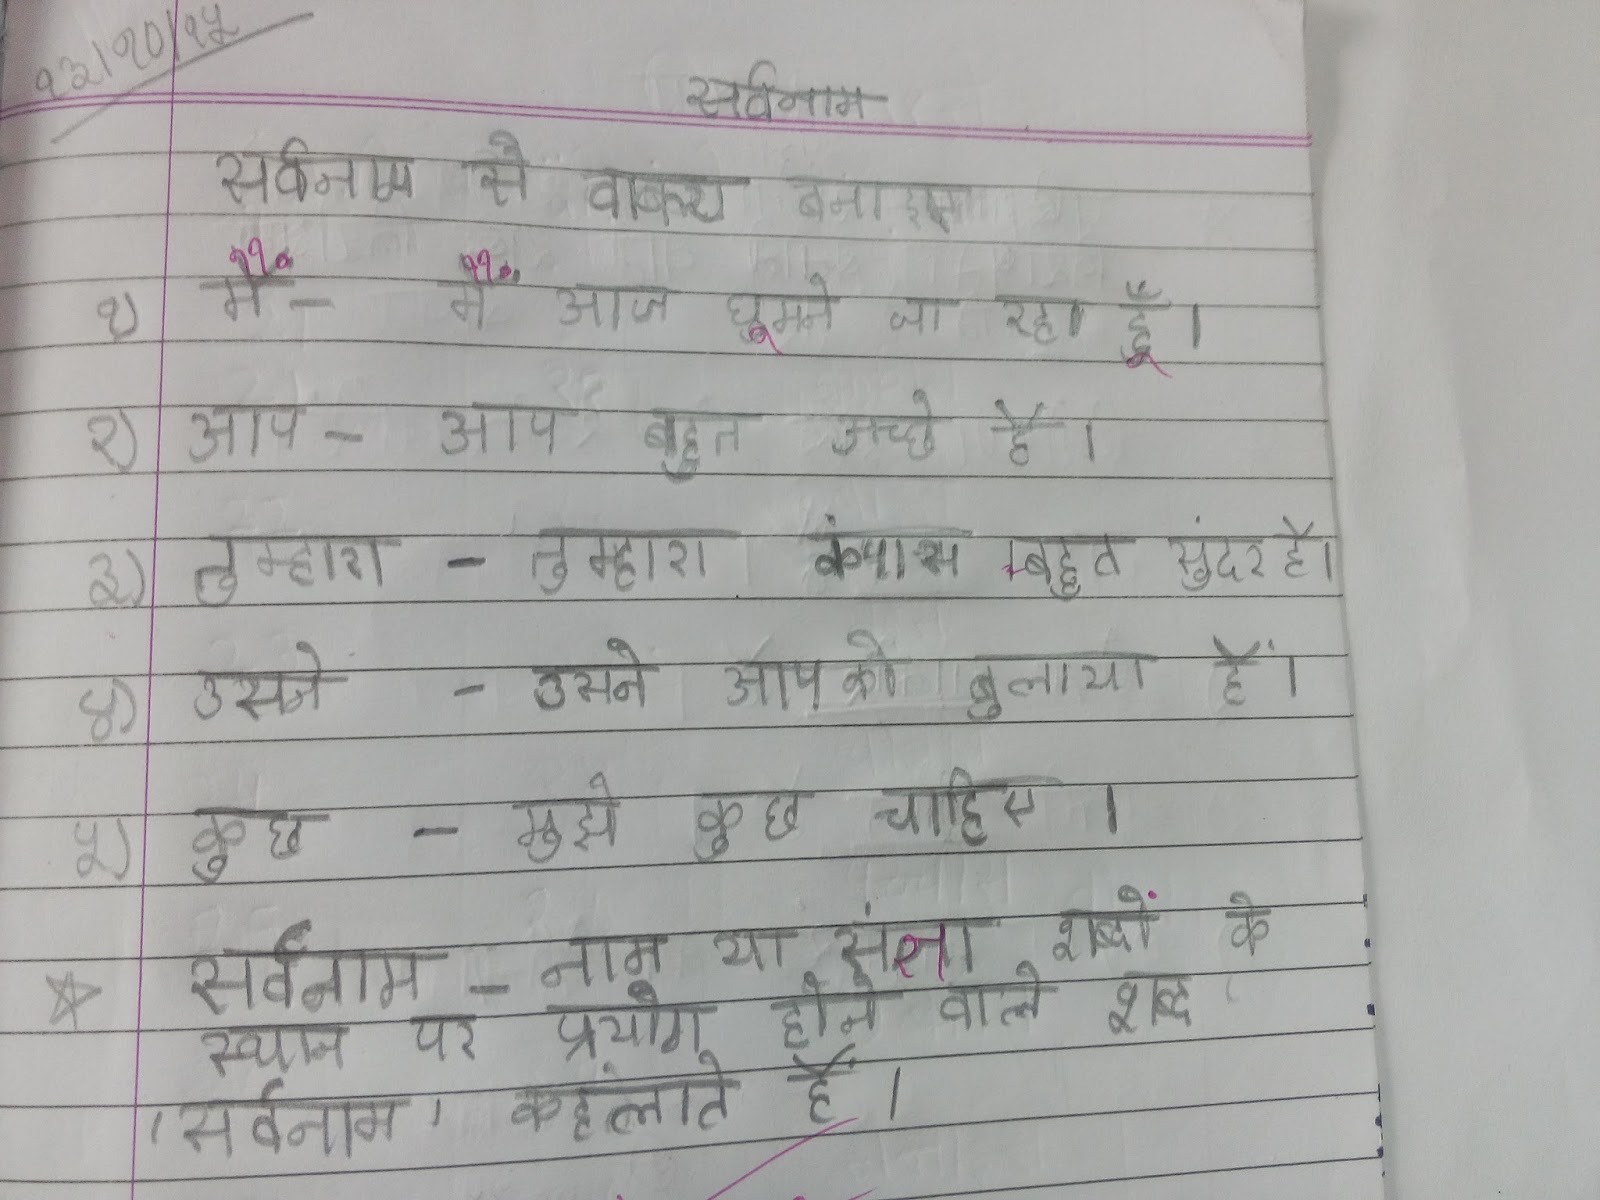 १३/१०/१५
सर्वनाम
सर्वनाम से वाक्य बनाइए
१) मैं - मैं आज घूमने जा रहा हूँ ।
२) आप - आप बहुत अच्छे हैं ।
३) तुम्हारा - तुम्हारा कंपास बहुत सुंदर है ।
४) उसने - उसने आपको बुलाया हैं ।
५) कुछ - मुझे कुछ चाहिए ।
सर्वनाम - नाम या संज्ञा शब्दों के
स्थान पर प्रयोग होने वाले शब्द
'सर्वनाम' कहलाते हैं ।